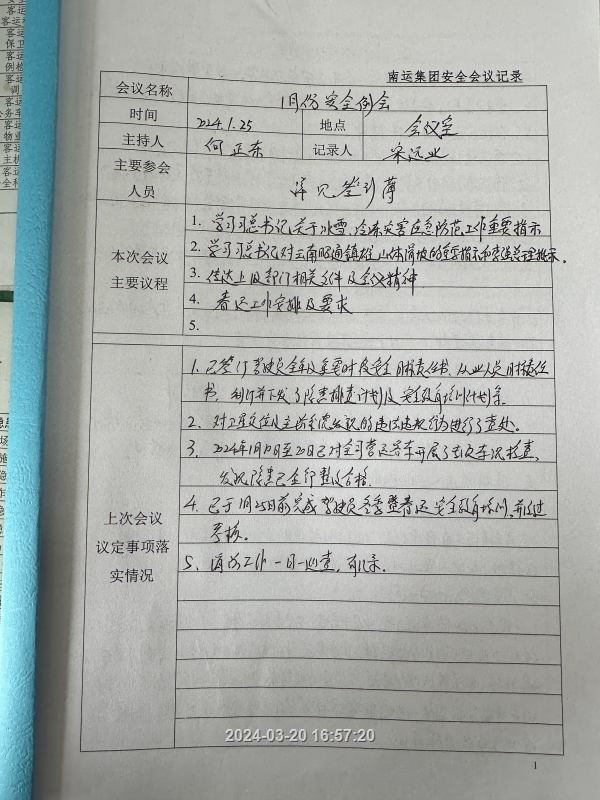 客运
客运
保卫
客运
例检
客运
调
客运
务车
客运
物业
客运
主机
客运
全科
南运集团安全会议记录
会议名称 1月份安全例会
时间 2024.1.25 地点 会议室
主持人 何正东 记录人 宋远业
主要参会
人员 详见签到薄
本次会议
主要议程
1. 学习习总书记关于冰雪、冷冻灾害应急防范工作重要指示
2. 学习习总书记对云南昭通镇雄山体滑坡的重要指示和李强总理批示。
3. 传达上级部门相关文件及会议精神
4. 春运工作安排及要求
5.
上次会议
议定事项落
实情况
1. 已签订驾驶员全年及重要时段安全目标责任书、从业人员目标责任
书，制订并下发了隐患排查计划及安全教育培训计划
2、对卫星定位及主动安全的违法违规行为进行了查处。
3、2024年1月 至20日已对全司营运客车开展了 车况检查，
发现隐患已全部整改合格。
4. 已于1月25日前完成驾驶员冬季暨春运安全教育培训，并经过
考核。
5、消防工作一日一巡查，有记录。
2024-03-20 16:57:20
1